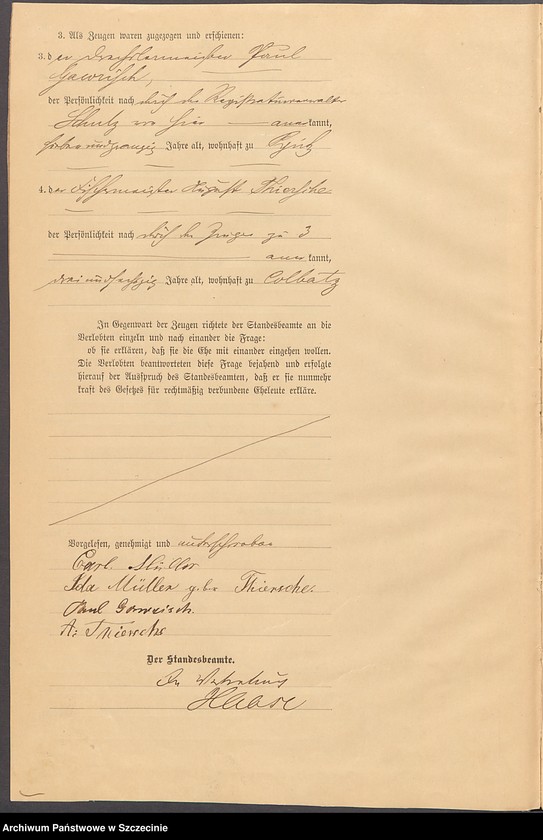 3. Als Zeugen waren zugezogen und erschienen:
3. der Drechslermeister Paul
Gawrisch,
der Persönlichkeit nach durch den Registraturverwalter
Schulz von hier anerkannt,
siebenundzwanzig Jahre alt, wohnhaft zu
4. der Fischermeister August Thiersche
der Persönlichkeit nach durch den Zeugen zu 3
anerkannt,
dreiundsechzig Jahre alt, wohnhaft zu Colbatz
In Gegenwart der Zeugen richtete der Standesbeamte an die
Verlobten einzeln und nach einander die Frage:
ob sie erklären, daß sie die Ehe mit einander eingehen wollen.
Die Verlobten beantworteten diese Frage bejahend und erfolgte
hierauf der Ausspruch des Standesbeamten, daß er sie nunmehr
kraft des Gesetzes für rechtmäßig verbundene Eheleute erkläre.
Vorgelesen, genehmigt und unterschrieben
Carl Müller
Ida Müller geb. Thiersche.
Paul Gawrisch.
A. Thiersche
Der Standesbeamte.
In Vertretung
Haase
Archiwum Państwowe w Szczecinie